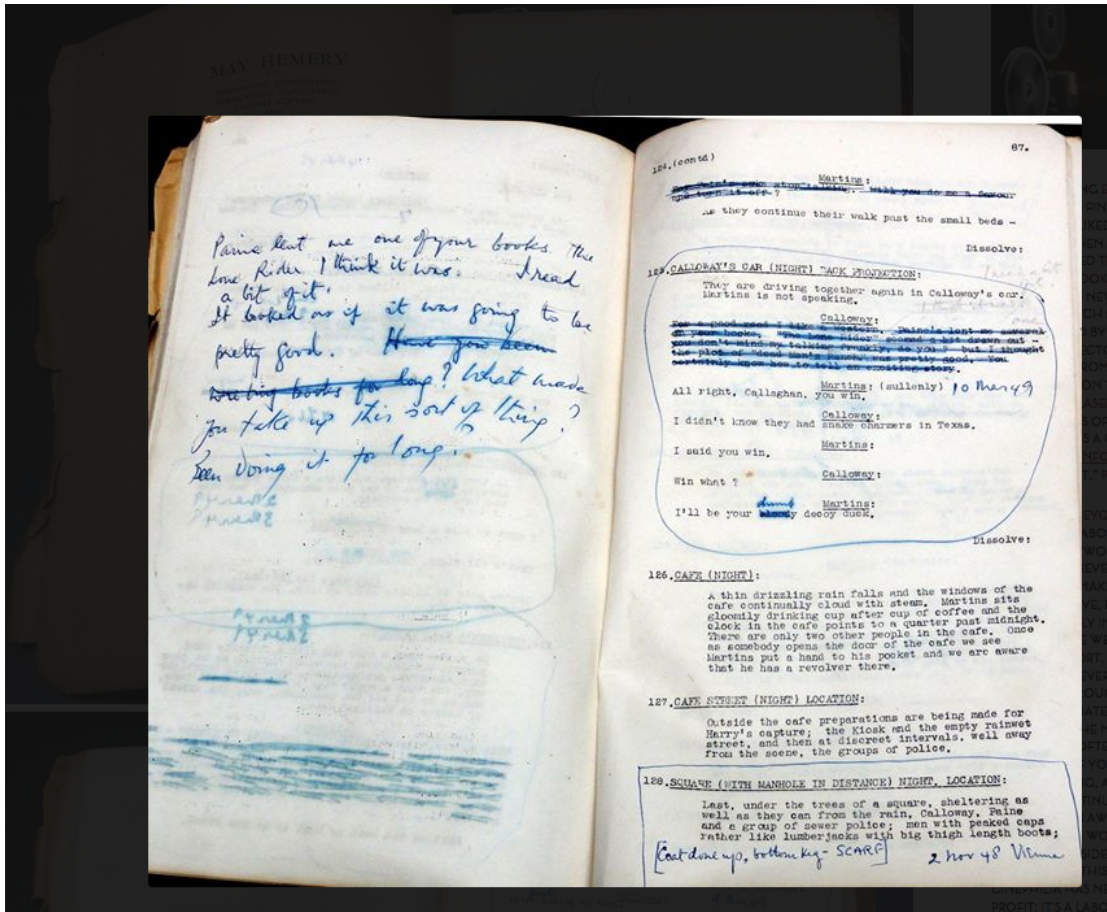 MAY HEMERY
Paine lent me one of your books. The
Lone Rider I think it was. I read
a bit of it.
It looked as if it was going to be
pretty good. Have you been
writing books for long? What made
you take up this sort of thing?
Been doing it for long?
87.
124.(contd)
Martins:
Will you do me a favour
and turn it off?
As they continue their walk past the small beds -
Dissolve:
125.CALLOWAY'S CAR (NIGHT) BACK PROJECTION:
They are driving together again in Calloway's car.
Martins is not speaking.
Calloway:
For a good read I like a Western. Paine's lent me several
of your books. "The Lone Rider" seemed a bit drawn out -
you don't mind my talking frankly, do you? - but I thought
the plot of "Dead Man's Ranch" was pretty good. You
certainly know how to tell an exciting story.
Martins: (sullenly) 10 Mar 49
All right, Callaghan, you win.
Calloway:
I didn't know they had snake charmers in Texas.
Martins:
I said you win.
Calloway:
Win what ?
dumb Martins:
I'll be your bloody decoy duck.
Dissolve:
126.CAFE (NIGHT):
A thin drizzling rain falls and the windows of the
cafe continually cloud with steam. Martins sits
gloomily drinking cup after cup of coffee and the
clock in the cafe points to a quarter past midnight.
There are only two other people in the cafe. Once
as somebody opens the door of the cafe we see
Martins put a hand to his pocket and we are aware
that he has a revolver there.
127.CAFE STREET (NIGHT) LOCATION:
Outside the cafe preparations are being made for
Harry's capture; the Kiosk and the empty rainwet
street, and then at discreet intervals, well away
from the scene, the groups of police.
128.SQUARE (WITH MANHOLE IN DISTANCE) NIGHT. LOCATION:
Last, under the trees of a square, sheltering as
well as they can from the rain, Calloway, Paine
and a group of sewer police; men with peaked caps
rather like lumberjacks with big thigh length boots;
[Coat done up, bottom - SCARF] 2 Nov 48 Vienna